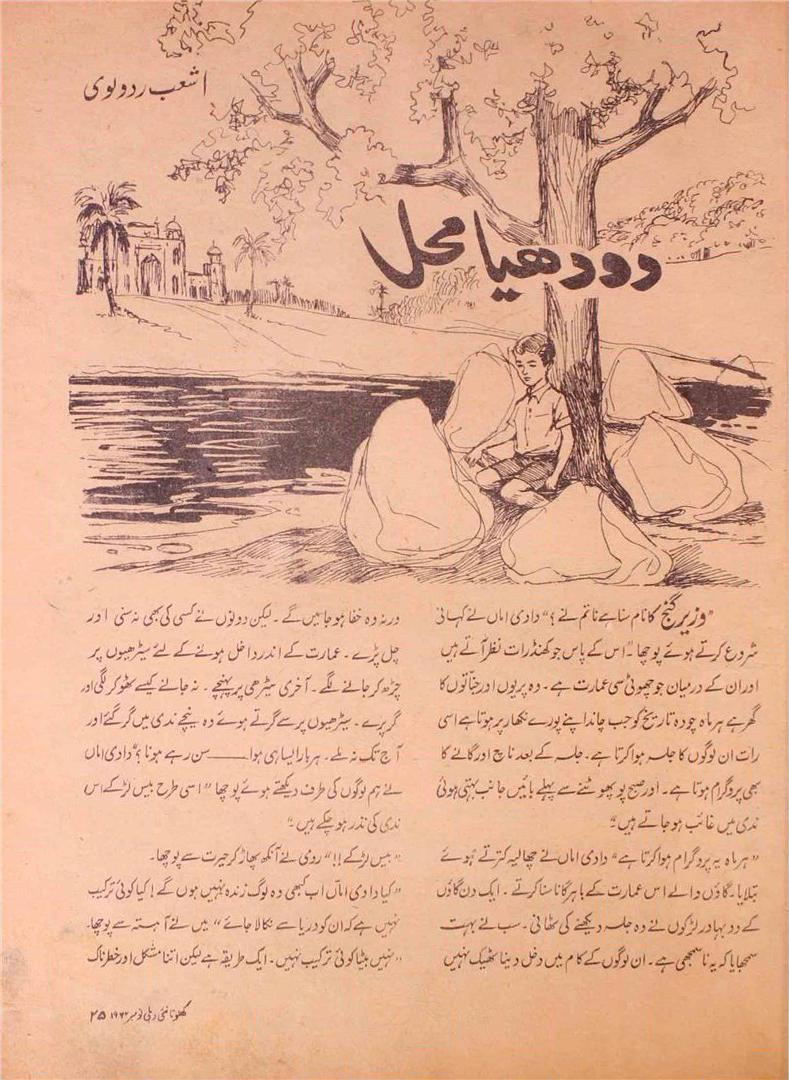 اشعب ردولوی
دودھیا محل
"وزیر گنج کا نام سنا ہے نا تم نے؟" دادی اماں نے کہانی
شروع کرتے ہوئے پوچھا "اس کے پاس جو کھنڈرات نظر آتے ہیں
اور ان کے درمیان جو چھوٹی سی عمارت ہے۔ وہ پریوں اور جنّاتوں کا
گھر ہے ہر ماہ چودہ تاریخ کو جب چاند اپنے پورے نکھار پر ہوتا ہے اسی
رات ان لوگوں کا جلسہ ہوا کرتا ہے۔ جلسہ کے بعد ناچ اور گانے کا
بھی پروگرام ہوتا ہے۔ اور صبح پو پھوٹنے سے پہلے بائیں جانب بہتی ہوئی
ندی میں غائب ہو جاتے ہیں"
"ہر ماہ یہ پروگرام ہوا کرتا ہے" دادی اماں نے چھالیہ کترتے ہوئے
بتلایا۔ گاؤں والے اس عمارت کے باہر گانا سنا کرتے۔ ایک دن گاؤں
کے دو بہادر لڑکوں نے وہ جلسہ دیکھنے کی ٹھانی۔ سب نے بہت
سمجھایا کہ یہ ناسمجھی ہے۔ ان لوگوں کے کام میں دخل دینا ٹھیک نہیں
ورنہ وہ خفا ہو جائیں گے۔ لیکن دونوں نے کسی کی بھی نہ سنی اور
چل پڑے۔ عمارت کے اندر داخل ہونے کے لئے سیڑھیوں پر
چڑھ کر جانے لگے۔ آخری سیڑھی پر پہنچے۔ نہ جانے کیسے ٹھوکر لگی اور
گر پڑے۔ سیڑھیوں پر سے گرتے ہوئے وہ نیچے ندی میں گر گئے اور
آج تک نہ ملے۔ ہر بار ایسا ہی ہوا ــــ سن رہے ہو نا؟" دادی اماں
نے ہم لوگوں کی طرف دیکھتے ہوئے پوچھا "اسی طرح بیس لڑکے اس
ندی کی نذر ہو چکے ہیں۔"
"بیس لڑکے!!" رومی نے آنکھ پھاڑ کر حیرت سے پوچھا۔
"کیا دادی اماں اب کبھی وہ لوگ زندہ نہیں ہوں گے! کیا کوئی ترکیب
نہیں ہے کہ ان کو دریا سے نکالا جائے" میں نے آہستہ سے پوچھا۔
"نہیں بیٹا کوئی ترکیب نہیں۔ ایک طریقہ ہے لیکن اتنا مشکل اور خطرناک
کھلونا نئی دہلی نومبر ۲۵